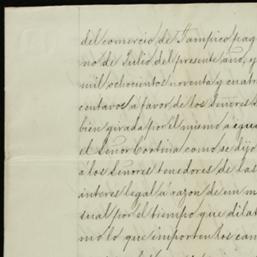 del comercio de Tampico pag
no de Julio del presente año, y
mil ochocientos noventa y cuatr
centavos a favor de los Señores
bien girada por El mismo a
el Señor Cortina como se dijo
á los Señores tenedores de las
interes legal a razon de un m
sual por el tiempo que dilat
mo lo que importen los cam